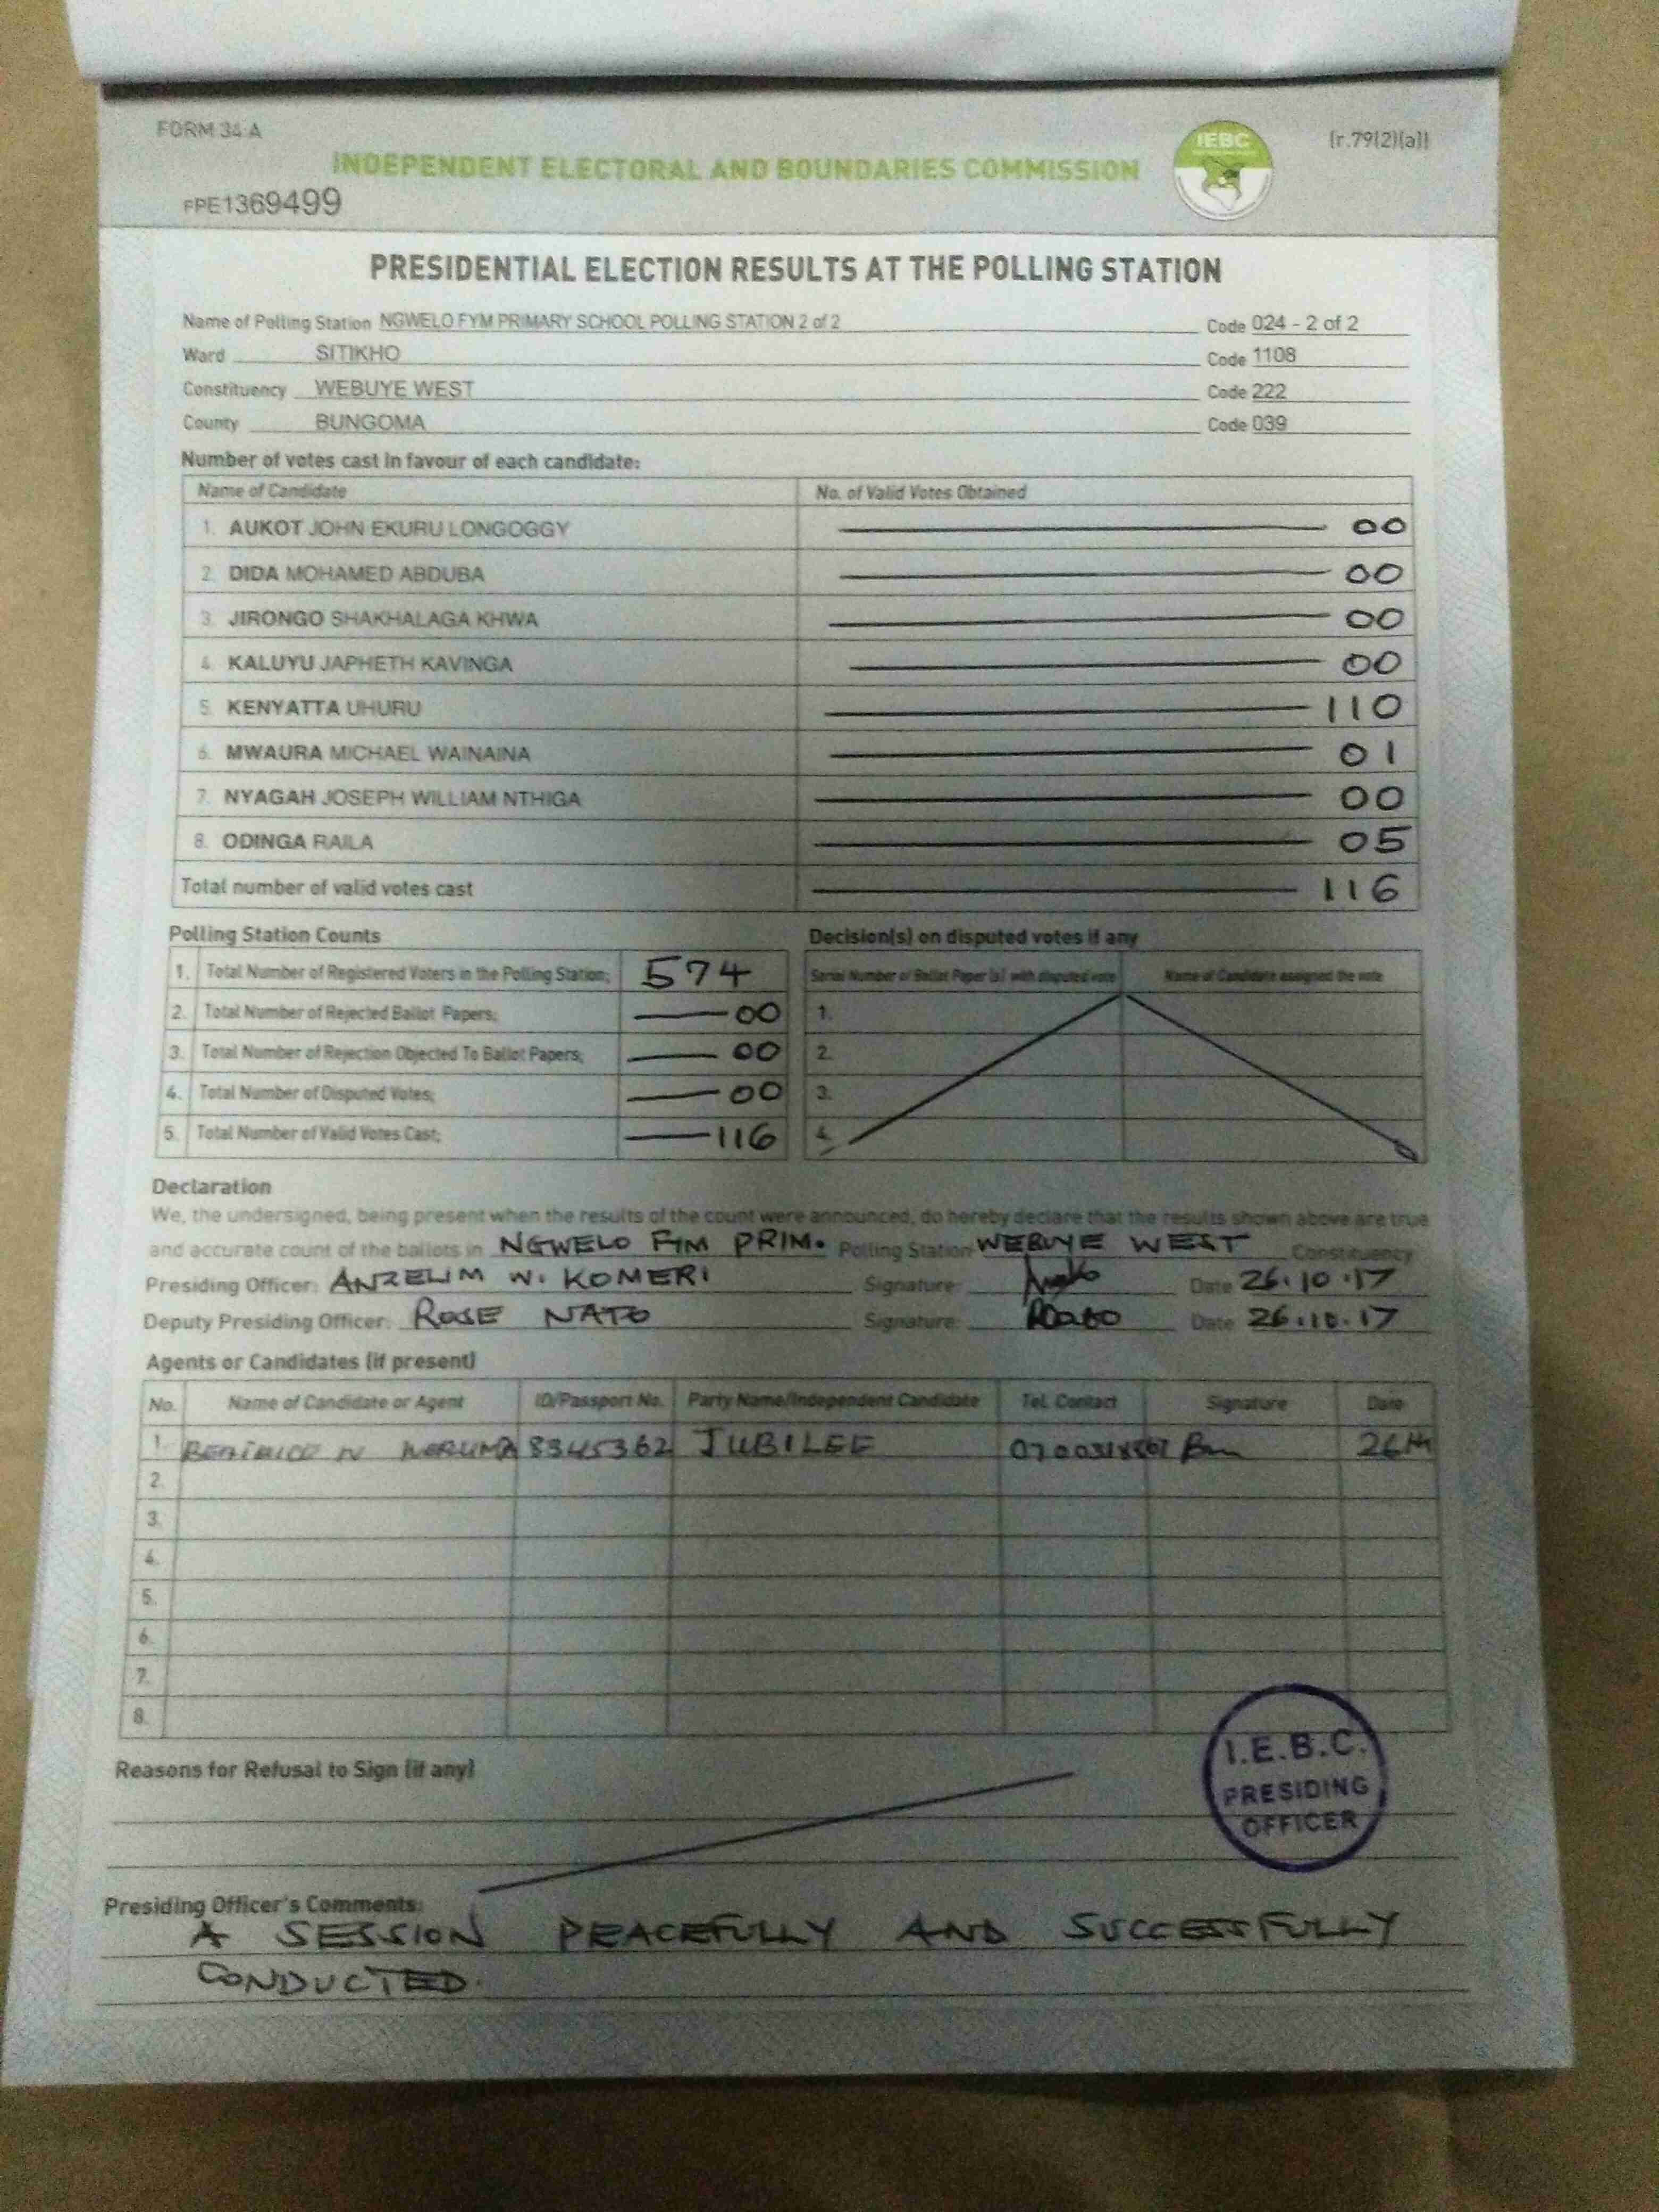 FORM 34 A
(r.79(2)(a))
IEBC
INDEPENDENT ELECTORAL AND BOUNDARIES COMMISSION
FPE1369499
PRESIDENTIAL ELECTION RESULTS AT THE POLLING STATION
Name of Polling Station NGWELO FYM PRIMARY SCHOOL POLLING STATION 2 of 2 Code 024 - 2 of 2
Ward SITIKHO Code 1108
Constituency WEBUYE WEST Code 222
County BUNGOMA Code 039
Number of votes cast in favour of each candidate:
Name of Candidate No. of Valid Votes Obtained
1. AUKOT JOHN EKURU LONGOGGY 00
2. DIDA MOHAMED ABDUBA 00
3. JIRONGO SHAKHALAGA KHWA 00
4. KALUYU JAPHETH KAVINGA 00
5. KENYATTA UHURU 110
6. MWAURA MICHAEL WAINAINA 01
7. NYAGAH JOSEPH WILLIAM NTHIGA 00
8. ODINGA RAILA 05
Total number of valid votes cast 116
Polling Station Counts
1. Total Number of Registered Voters in the Polling Station; 574
2. Total Number of Rejected Ballot Papers; 00
3. Total Number of Rejection Objected To Ballot Papers; 00
4. Total Number of Disputed Votes; 00
5. Total Number of Valid Votes Cast; 116
Decision(s) on disputed votes if any
Serial Number of Ballot Paper (s) with disputed vote Name of Candidate assigned the vote
1.
2.
3.
4.
Declaration
We, the undersigned, being present when the results of the count were announced, do hereby declare that the results shown above are true
and accurate count of the ballots in NGWELO FYM PRIM. Polling Station WEBUYE WEST Constituency
Presiding Officer: ANZELIM W. KOMERI Signature: Date 26.10.17
Deputy Presiding Officer: ROSE NATO Signature: Date 26.10.17
Agents or Candidates (if present)
No. Name of Candidate or Agent ID/Passport No. Party Name/Independent Candidate Tel. Contact Signature Date
1. N 8345362 JUBILEE 26th
2.
3.
4.
5.
6.
7.
8.
I.E.B.C.
PRESIDING
OFFICER
Reasons for Refusal to Sign (if any)
Presiding Officer's Comments:
A SESSION PEACEFULLY AND SUCCESSFULLY
CONDUCTED.